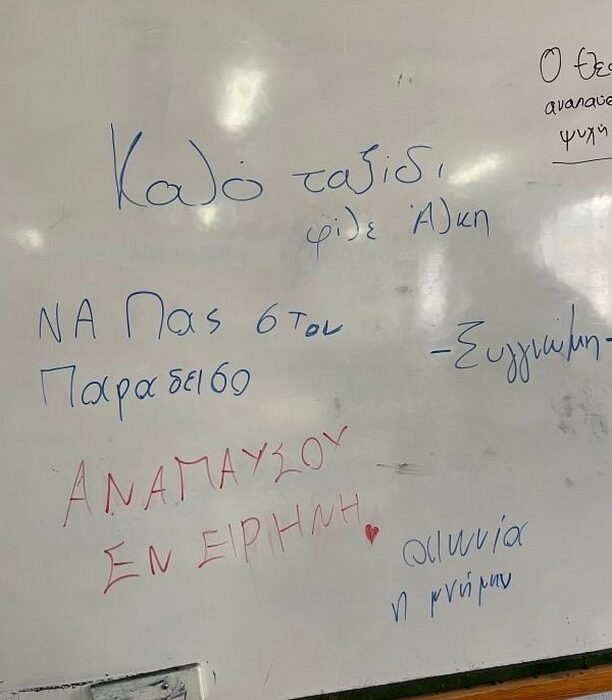 Ο Θεό
αναπαύσ
ψυχή
Καλό ταξίδι
φίλε Άλκη
ΝΑ Πας στον
Παραδεισο
-Συγγνώμη-
ΑΝΑΠΑΥΣΟΥ
ΕΝ ΕΙΡΗΝΗ
αιωνία
η μνήμην